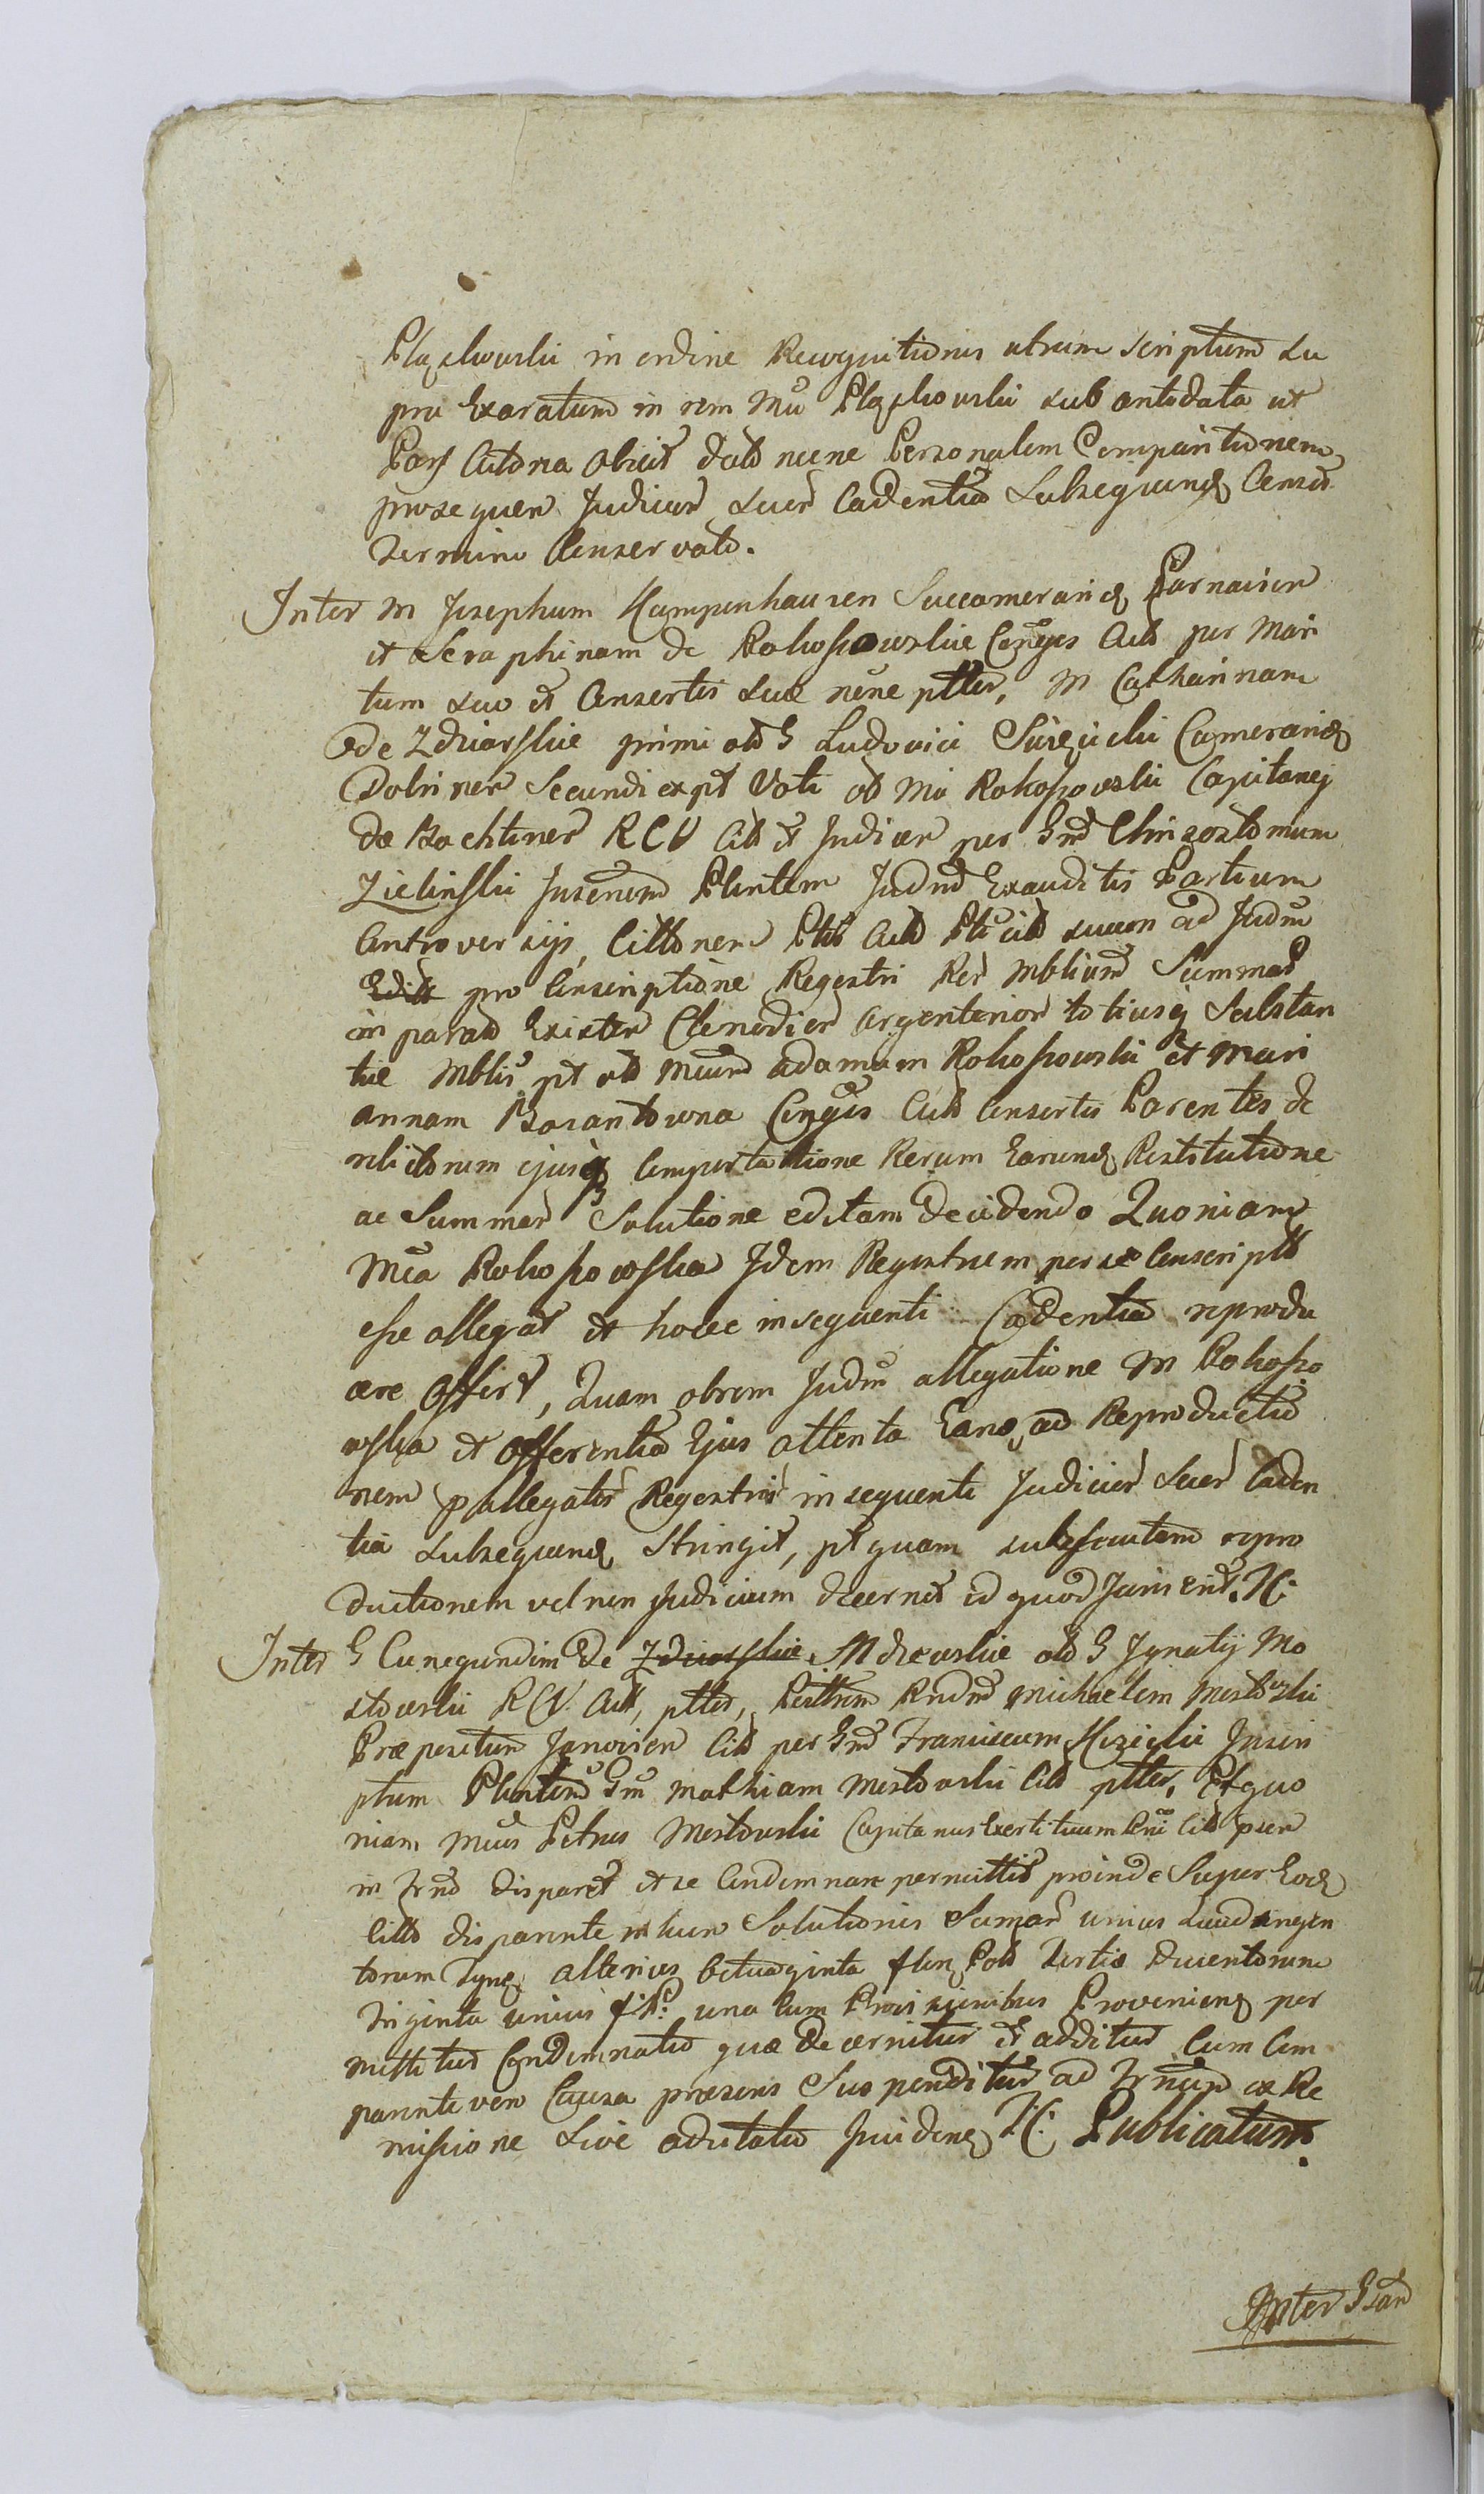 Pląchowski in ordine Recognitionis utrum Scriptum Su
pra Exaratum in rem Mci Pląchowski sub antedata ut
Pars Actorea obiicit dato necne Personalem Comparitionem
prosequen Judicior Suor Cadentia Subsequenq Censu
Termino Conservato.
Inter M Josephum Kampenhausen Succamerarię Parnavien
et Seraphinam de Rokossowskie Conges Act per Mari
tum suo et Consortis suæ nõne ptter, M Catharinam
de Zdziarskie primi olt G Ludovici Sierzęcki Camerarię
Dobrinen Secundi expt Voti ol Mci Rokossowski Capitanej
de Bochtiner RCV Cit et Judicer per Gnd Chrizostomum
Zielinski Juratum Plentem Judm Exauditis Partium
Controversijs, Cittonem Ptis Act Pti Cit suam ad Judm
Edit pro Conscriptione Regestri Rer Mblium Summar
in parato Existen Clenodior Argenterior totiusq Substan
tiæ Mblis pt olt Mcum Adamum Rokossowski et Mari
annam Barantowna Conges Act Consortis Parentes de
relictorum ejusq Comportatione Rerum Earundę Restitutione
ac Summar Solutione editam decidendo Quoniam
Mca Rokossowska Idem Regestrum per se Conscriptt
esse allegat et hocce insequenti Cadentia reprodu
cere Offert, Quam obrem Judm allegatione M Rokosso
wska et Offerentia Ejus attenta Eand ad Reproductio
nem pallegator Regestror insequenti Judicior Suor Caden
tia Subsequenq Stringit, pt quam subsecutam repro
ductionem vel non Judicium decernet id quod Juris erit. JC.
Inter G Cunegundim de Zdziarskie Mdzewskie olt G Ignatij Mo
stowski RCV. Act, ptter, Pertrem Rndm Michaelem Mostowski
Præpositum Janovien Cit per Gnd Franciscum Kizicki Inscri
ptum Plentem Gm Mathiam Mostowski Cit ptter, Et quo
niam Mcus Petrus Mostowski Capitanus Exercituum Rni Cit pser
in Trno disparet et se Condemnare permittit proinde Super Eodę
Citto disparente in lucro Solutionis Sumar unius Quadringen
torum Tynę alterius Octuaginta flen Pol Tertiæ Ducentorum
Triginta unius f: P: una cum Provisionibus Proveniendę per
mittitur Condemnatio quæ decernitur et additur Cum Com
parente vero Causa præsens Suspenditur ad Trnum ex Re
missione Sive adcitatio Incidenę JC. Publicatum.
Inter Gsan